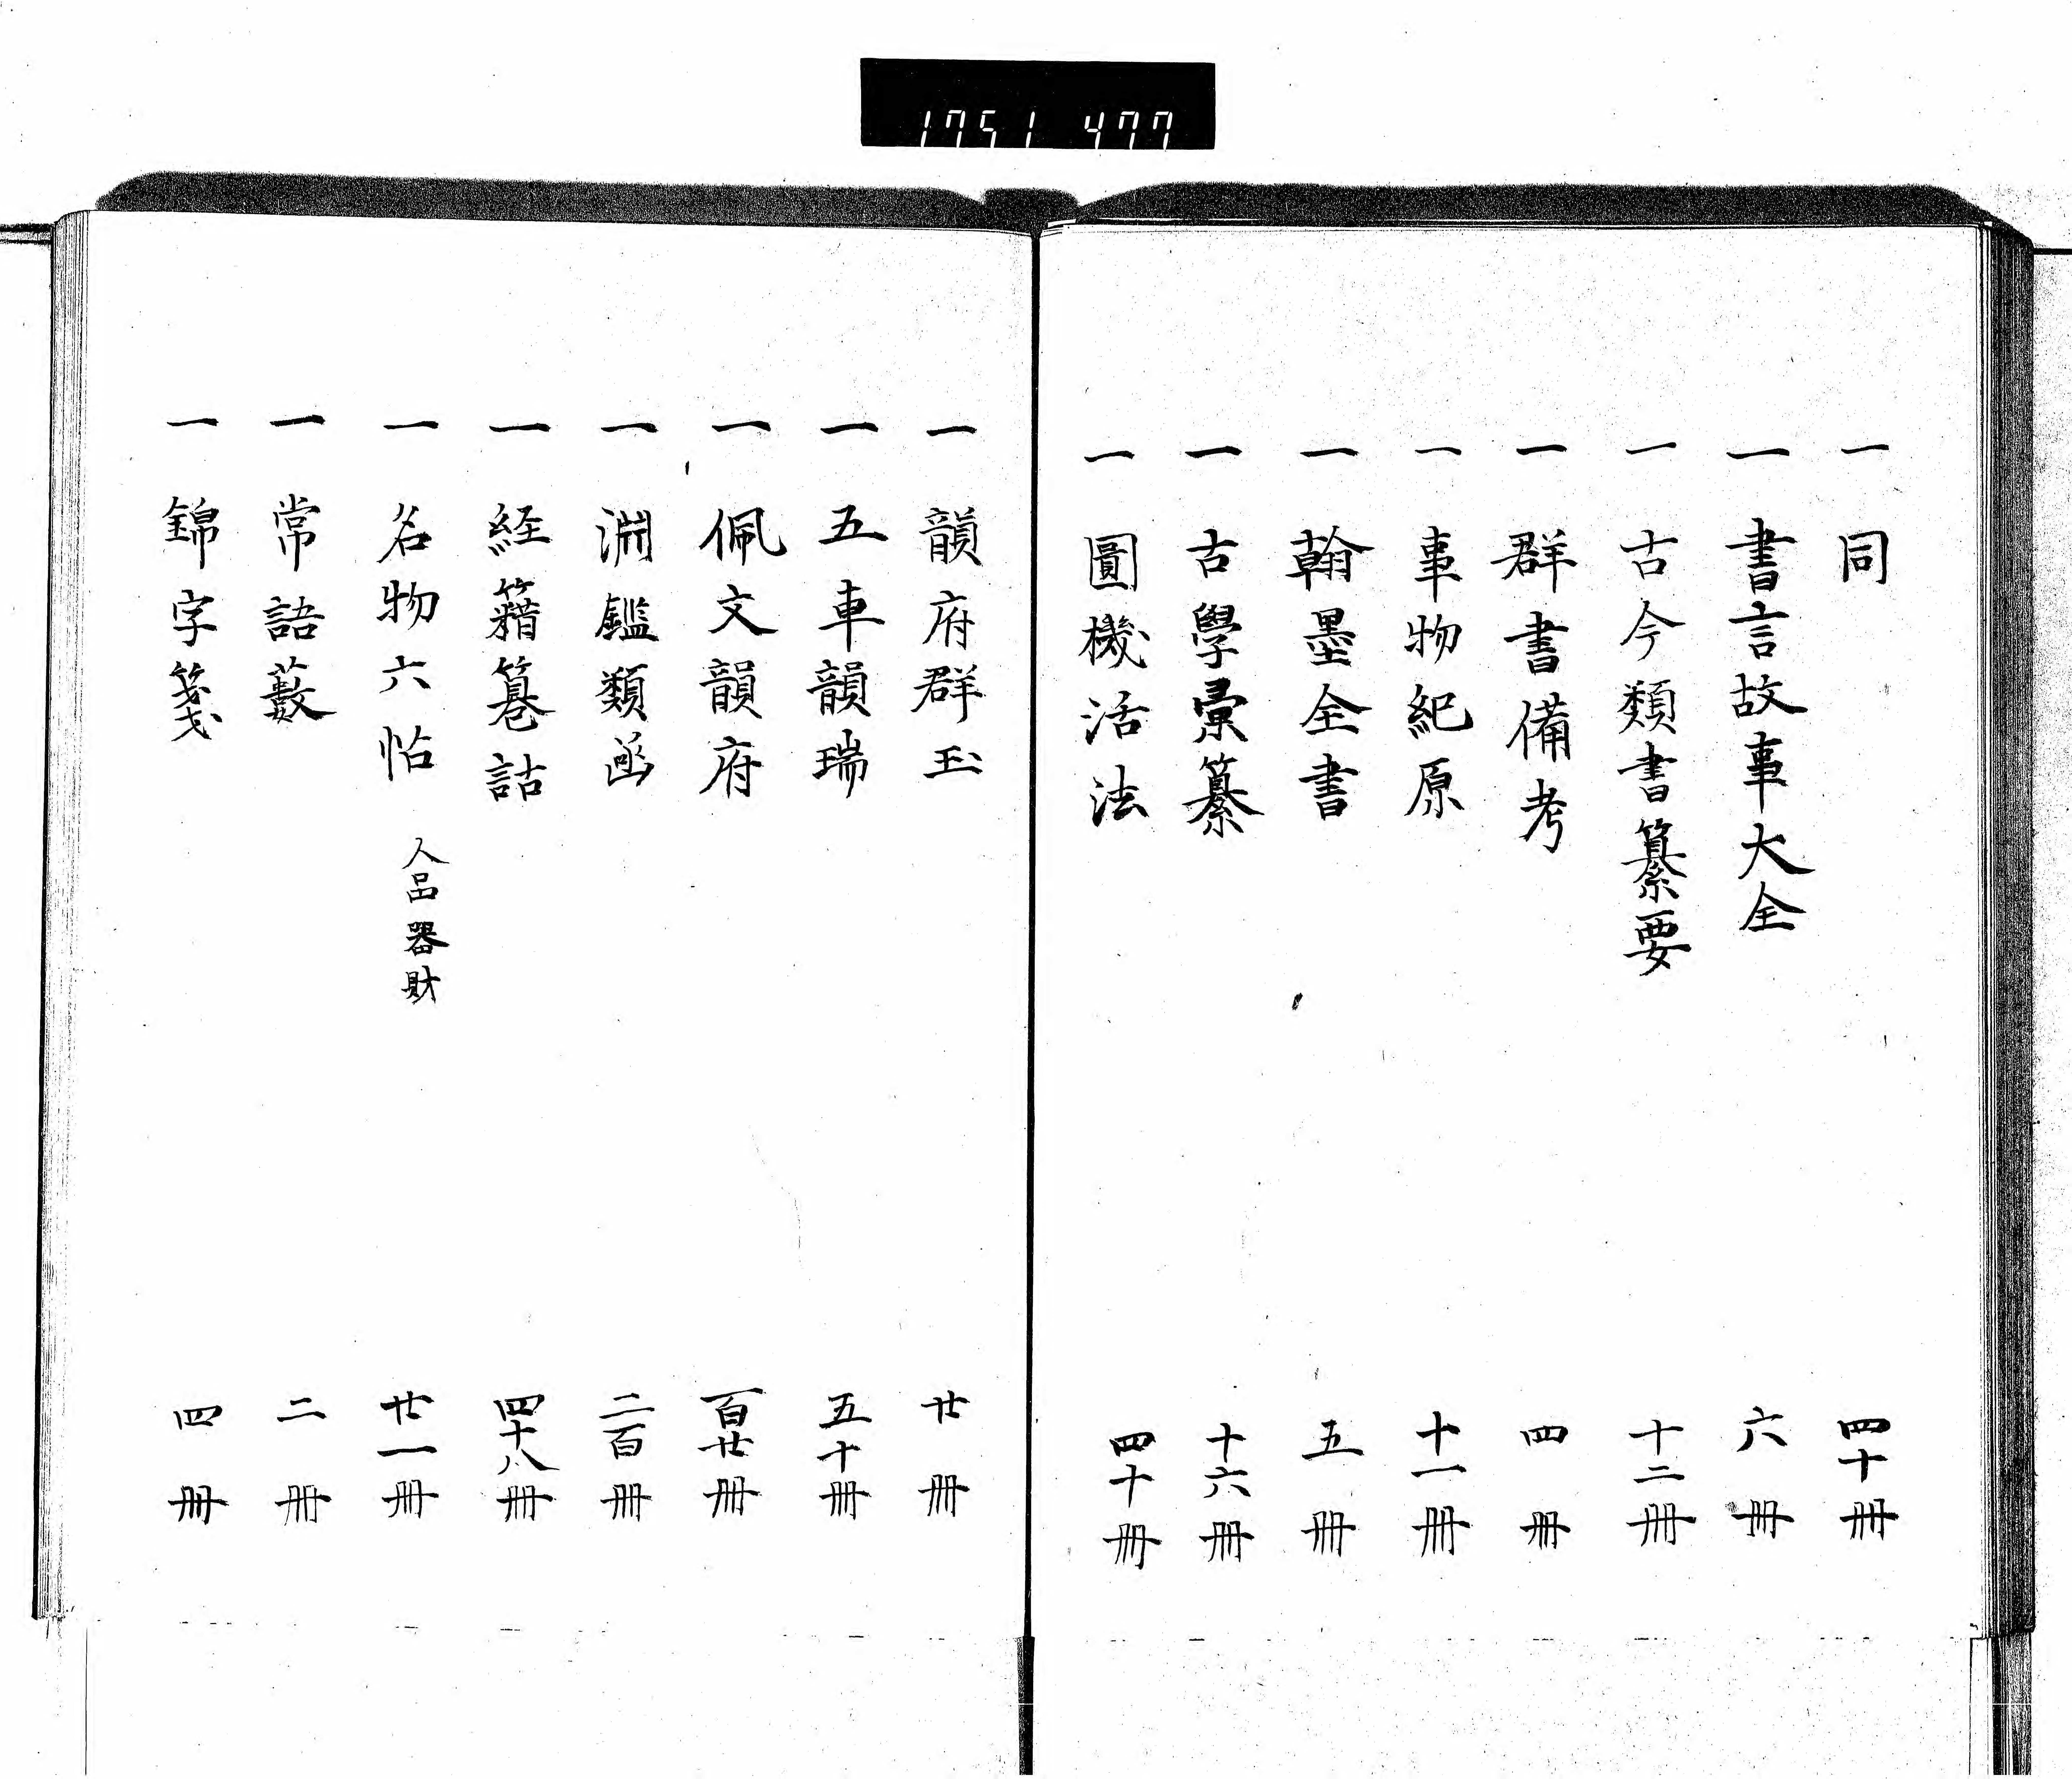 1751 477
一 同 四十冊
一 書言故事大全 六冊
一 古今類書纂要 十二冊
一 群書備考 四冊
一 事物紀原 十一冊
一 翰墨全書 五冊
一 古學彙纂 十六冊
一 圓機活法 四十冊
一 韻府群玉 廿冊
一 五車韻瑞 五十冊
一 佩文韻府 百廿冊
一 淵鑑類函 二百冊
一 経籍籑詁 四十八冊
一 名物六帖 人品 器財 廿一冊
一 常語藪 二冊
一 錦字箋 四冊